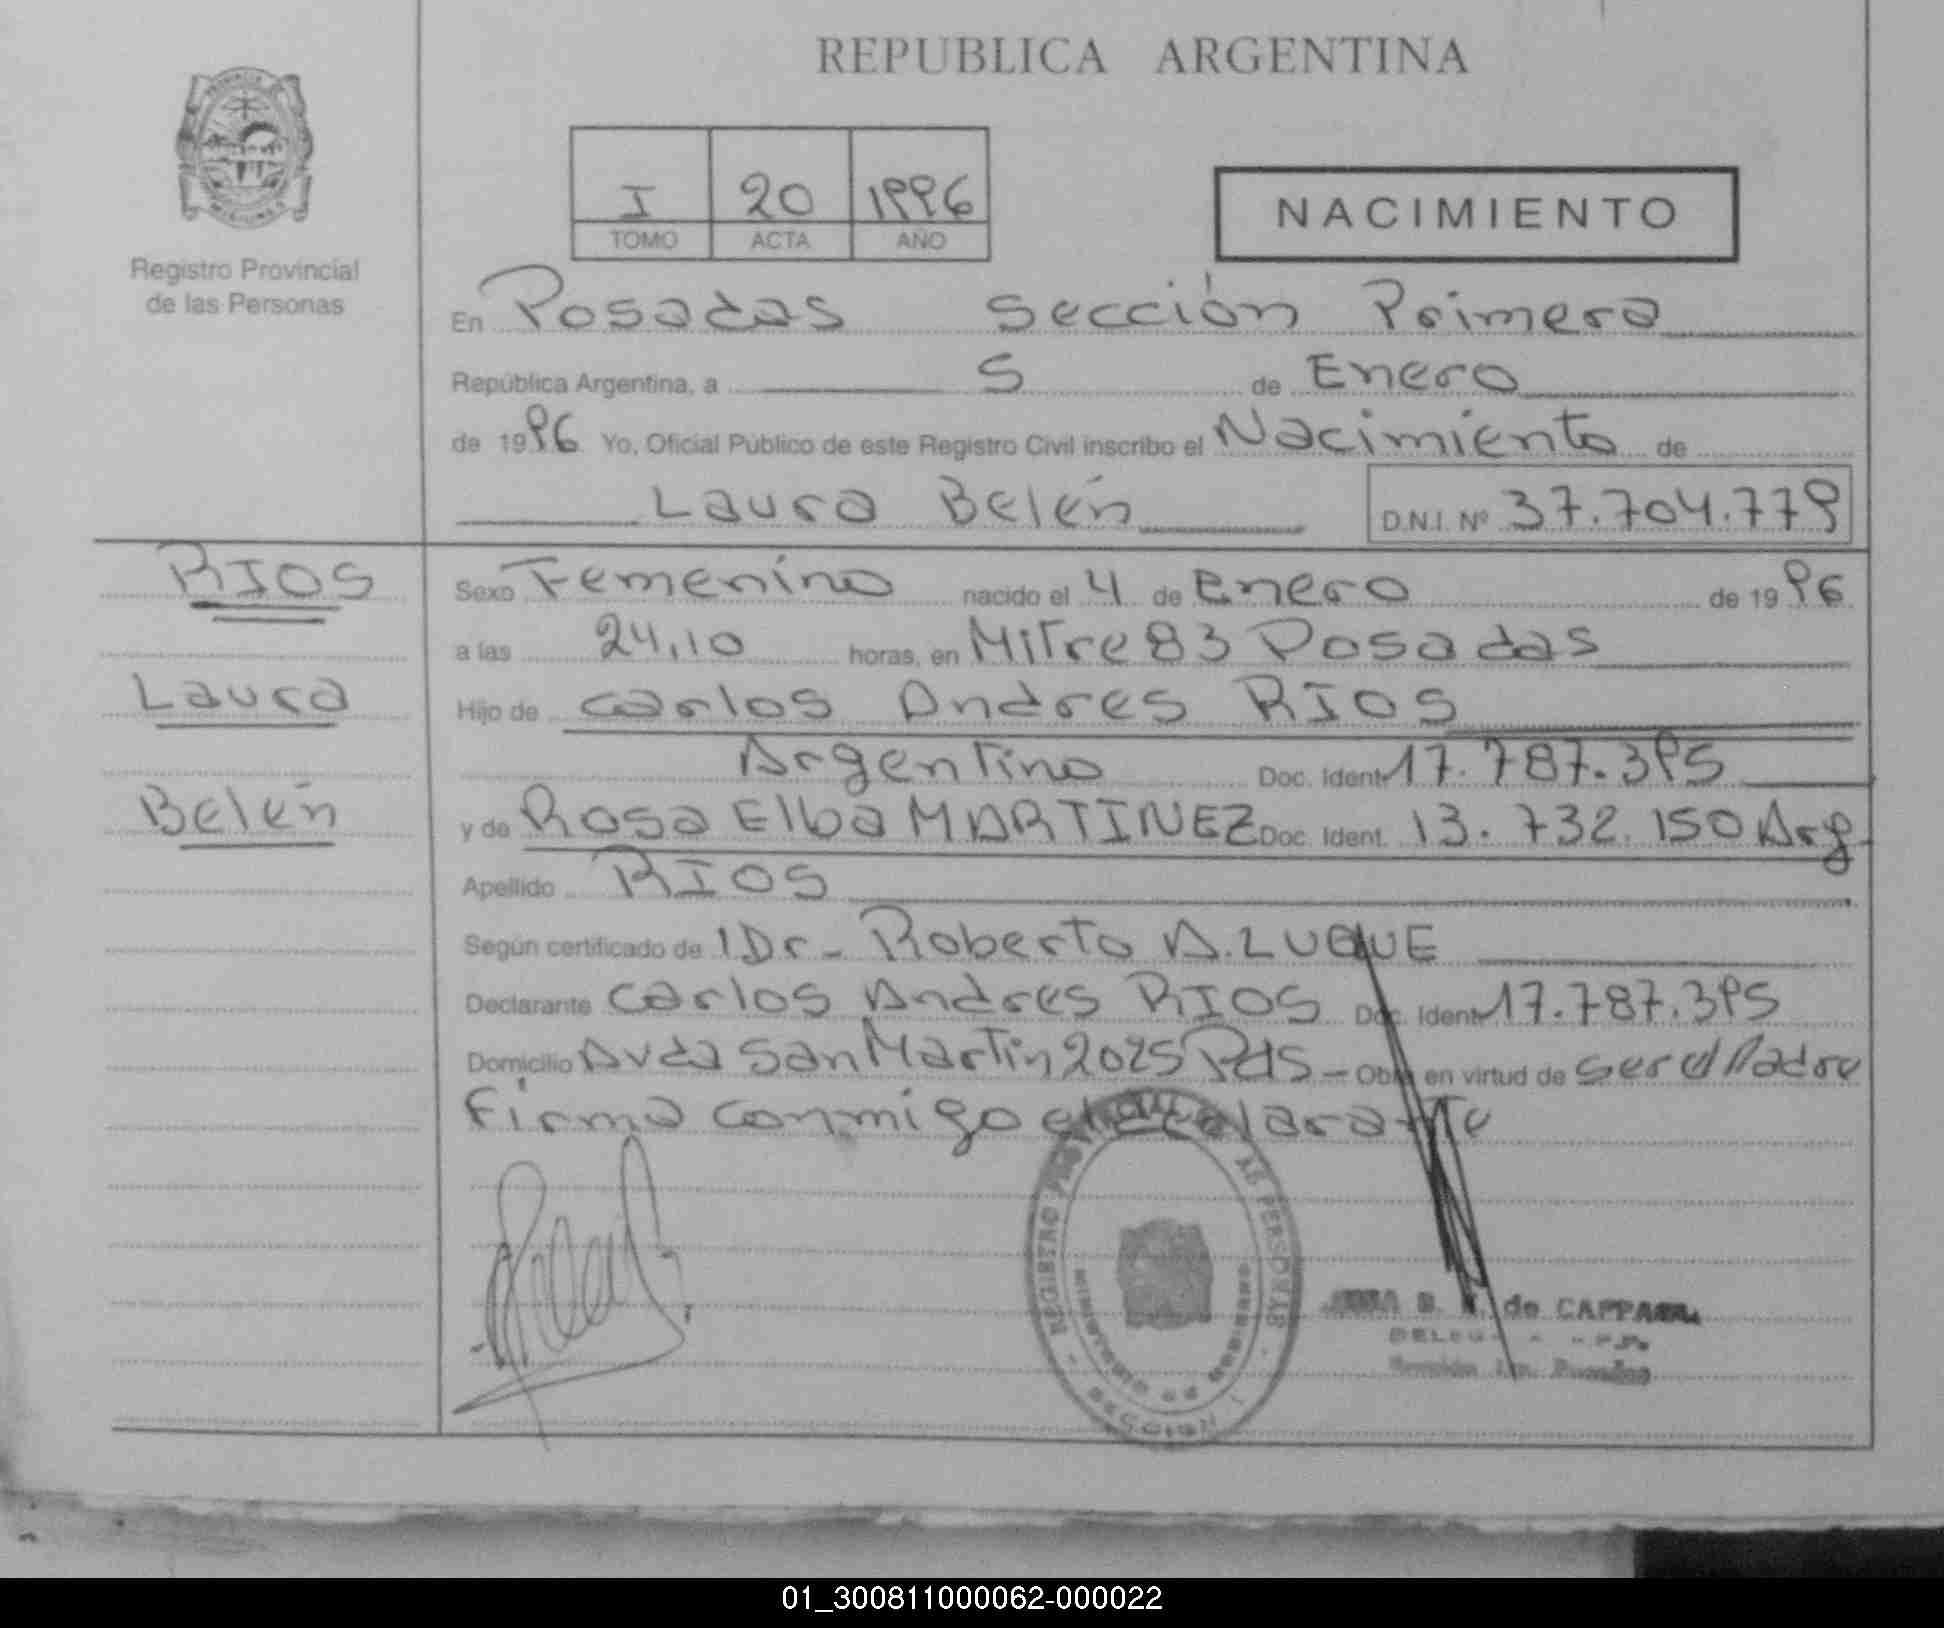 REPUBLICA ARGENTINA
I 20 1996
TOMO ACTA AÑO
NACIMIENTO
Registro Provincial
de las Personas
En Posadas Sección Primera
República Argentina, a 5 de Enero
de 1996 Yo, Oficial Público de este Registro Civil inscribo el Nacimiento de
Laura Belén D.N.I. Nº 37.704.779
RIOS
Laura
Belén
Sexo Femenino nacido el 4 de Enero de 1996
a las 24,10 horas, en Mitre 83 Posadas
Hijo de Carlos Andres RIOS
Argentino Doc. Ident. 17.787.395
y de Rosa Elba MARTINEZ Doc. Ident. 13.732.150 Arg.
Apellido RIOS
Según certificado de l Dr- Roberto A. LUQUE
Declarante Carlos Andres RIOS Doc. Ident. 17.787.395
Domicilio Avda San Martin 2025 Pds - Obra en virtud de ser el Padre
Firma conmigo el declarante
REGISTRO PERSONAS
MISIONES
B. de CAPPARA
01_300811000062-000022